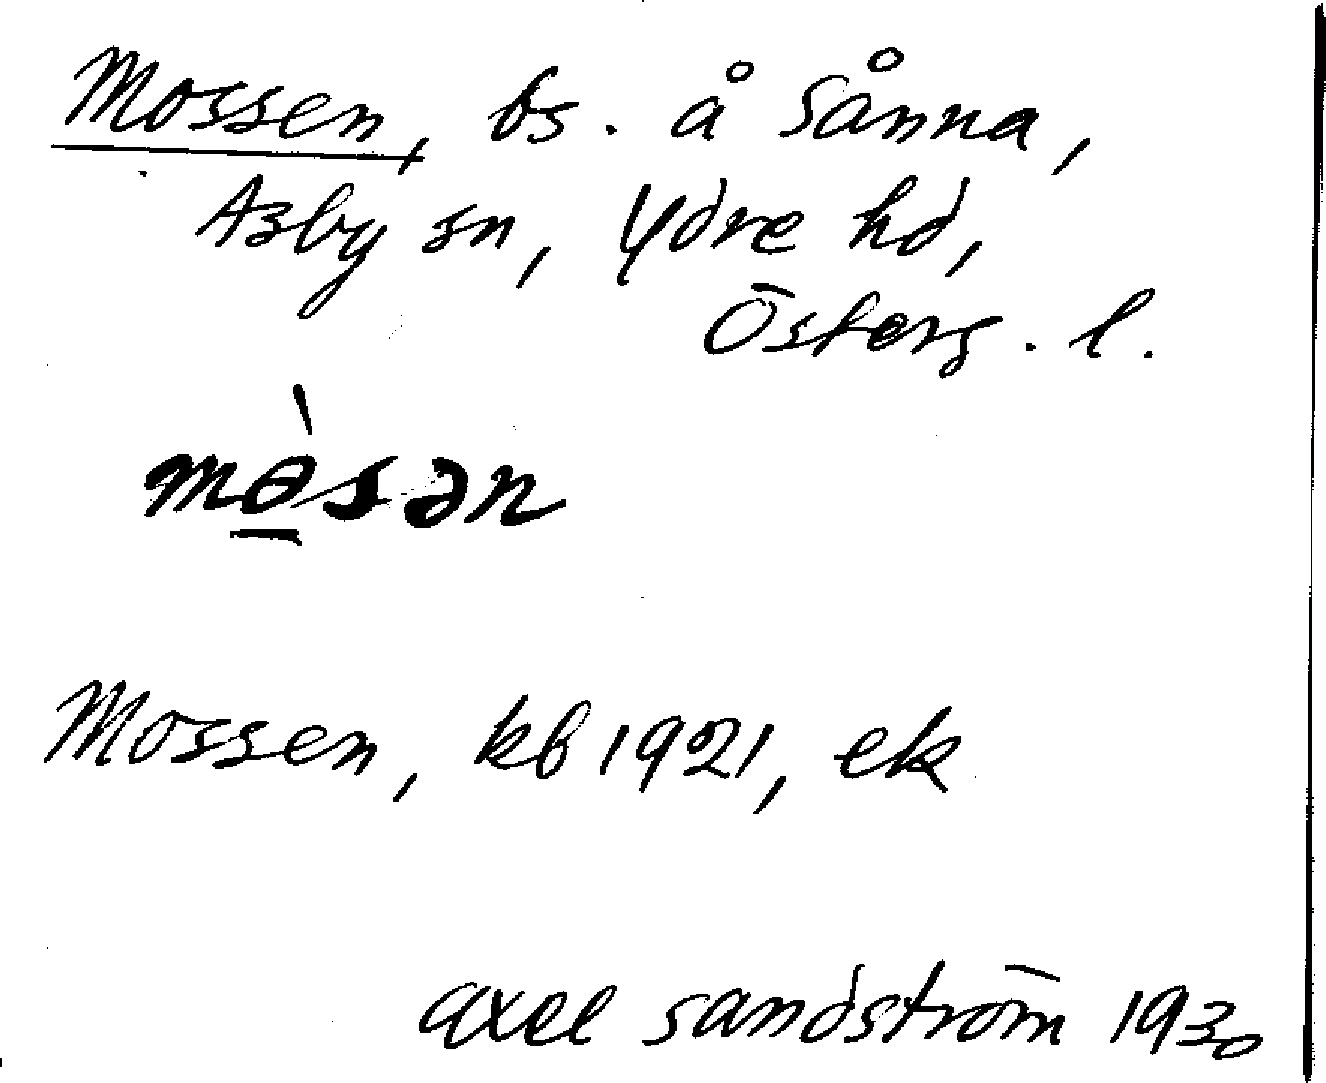 Mossen, bs. å Sånna,
Asby sn, Ydre hd,
Österg. l.
mò̱sən
Mossen, kb 1921, ek
axel sandström 1930